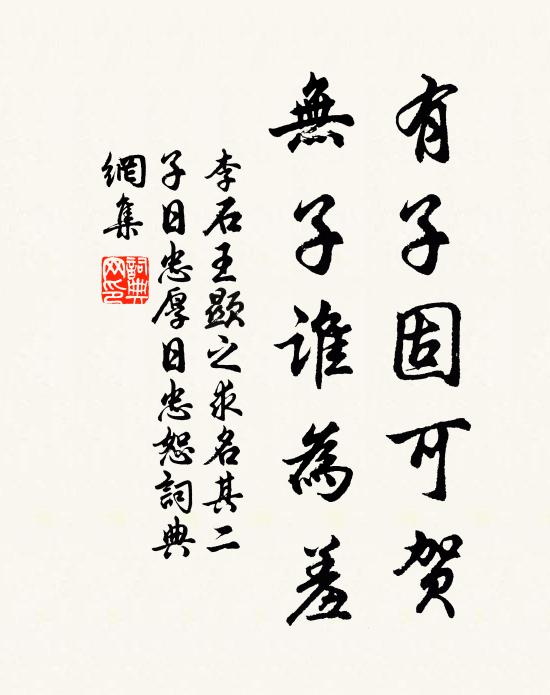 有子固可贺
無子谁為羞
李石王顯之求名其二
子日忠厚日忠恕詞典
網集
詞典網印